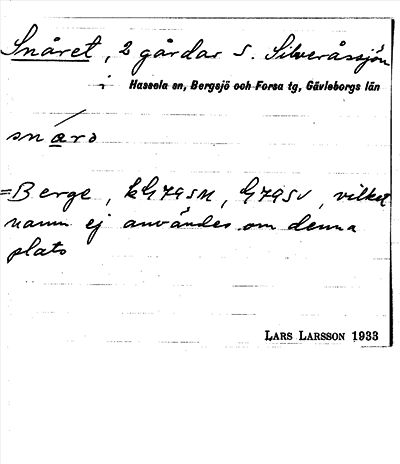 Snåret, 2 gårdar S. Silveråssjön
i Hassela sn, Bergsjö och Forsa tg, Gävleborgs län
snārə
=Berge, kG79SM, G79SV, vilket
namn ej användes om denna
plats
LARS LARSSON 1933